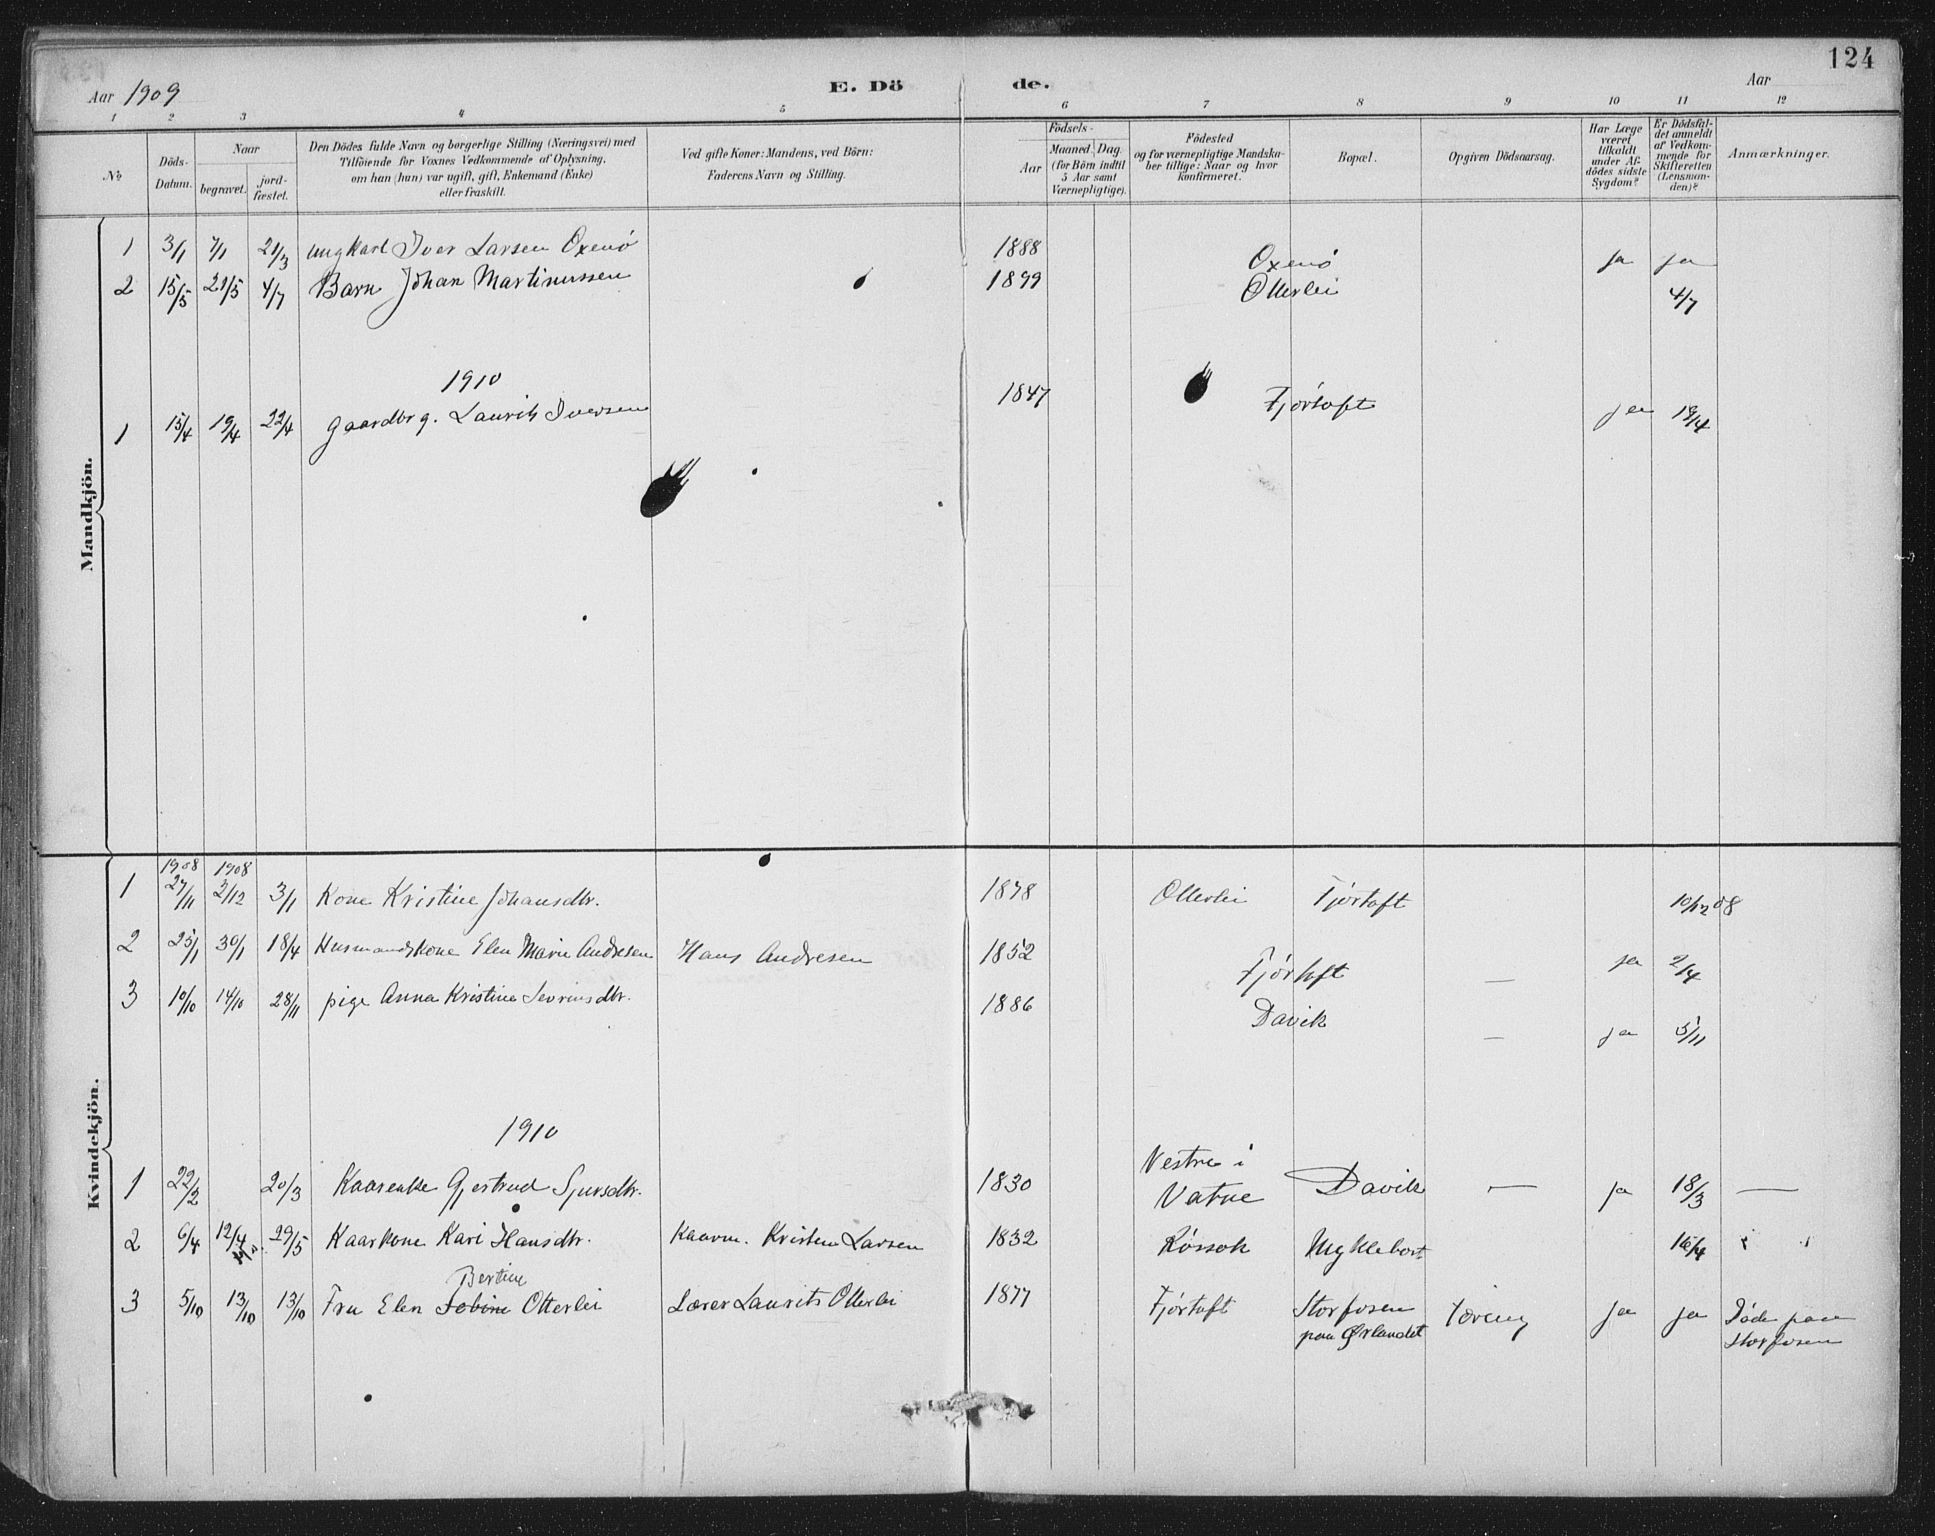 124
Aar 1909 E. Dö de. Aar
1 2 3 4 5 6 7 8 9 10 11 12
No.
Döds-Datum.
Naar
begravet.
jord-fæstet.
Den Dödes fulde Navn og borgerlige Stilling (Næringsvei) med
Tilföiende for Voxnes Vedkommende af Oplysning,
om han (hun) var ugift, gift, Enkemand (Enke)
eller fraskilt.
Ved gifte Koner: Mandens, ved Börn:
Faderens Navn og Stilling.
Födsels-
Aar
Maaned. Dag.
(for Börn indtil
5 Aar samt
Værnepligtige).
Födested
og for værnepligtige Mandska-
ber tillige: Naar og hvor
konfirmeret.
Bopæl.
Opgiven Dödsaarsag.
Har Læge
været
tilkaldt
under Af-
dödes sidste
Sygdom?
Er Dödsfal-
det anmeldt
af Vedkom-
mende for
Skifteretten
(Lensman-
den)?
Anmærkninger.
Mandkjön.
1 3/1 7/1 21/3 ungkarl Iver Larsen Oxenö 1888 Oxenö ja ja
2 15/5 21/5 4/7 Barn Johan Martinussen 1899 Otterlei 4/7
1910
1 15/4 19/4 22/4 Gaardbrg. Laurits Iversen 1847 Fjörtoft ja 19/4
Kvindekjön.
1908 1908
1 27/11 2/12 3/1 Kone Kristine Johansdtr. 1878 Otterlei Fjörtoft 10/12 08
2 25/1 30/1 18/4 Husmandskone Elen Marie Andresen Hans Andresen 1852 Fjörtoft — ja 2/4
3 10/10 14/10 28/11 pige Anna Kristine Sevrinsdtr. 1886 Davik — ja 5/11
1910
1 22/2 20/3 Kaarenke Gjertrud Sjursdtr. 1830 Vestre i
Vatne Davik — ja 18/3 —
2 6/4 12/4 29/5 Kaarkone Kari Hansdtr. Kaarm. Kristen Larsen 1832 Rørsok Myklebost 16/4
Bertine
3 5/10 13/10 13/10 Fru Elen Otterlei Lærer Laurits Otterlei 1877 Fjörtoft Storfosen
paa Ørlandet tæring ja ja Döde paa
Storfosen